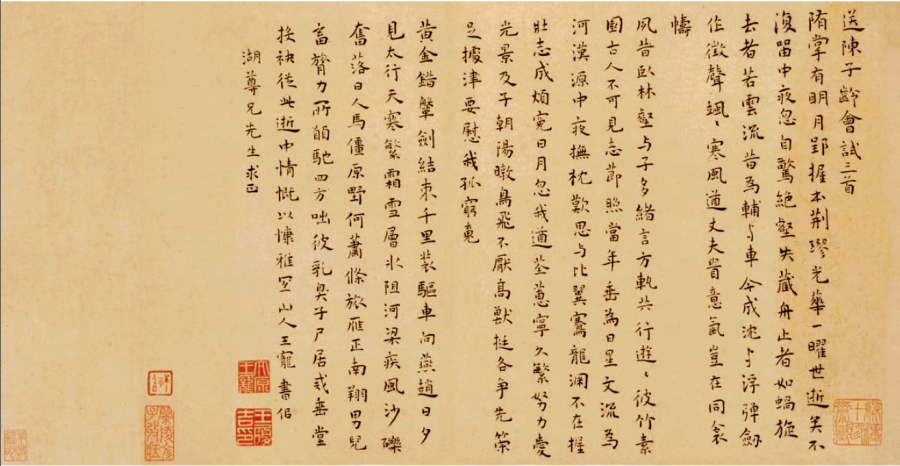 送陳子齡會試三首
隋掌有明月郢握本荆璆光華一曜世逝矣不
復留中夜忽自驚絕壑失藏舟止者如蝸旋
去者若雲流昔為輔与車今成沈与浮彈劒
作徵聲颯〻寒風遒丈夫貴意氣豈在同衾
幬
夙昔臥林壑与子多緒言方軌共行遊〻彼竹素
園古人不可見志節照當年垂為日星文流為
河漢源中夜撫枕歎思与比翼騫龍淵不在握
壯志成煩冤日月忽我遒荃蕙寧久繁努力愛
光景及子朝陽暾鳥飛不厭高獸挺各争先榮
足據津要慰我孤窮
黄金錯鞶劍結束千里裝驅車向燕趙日夕
見太行天寒繁霜雪層氷阻河梁疾風沙礫
奮落日人馬僵原野何蕭條旅雁正南翔男兒
富膂力所願馳四方咄彼乳臭子尸居或垂堂
袂從此逝中情慨以慷雅宜山人王寵書侣
湖尊兄先生求正
太原王寵
王履吉印